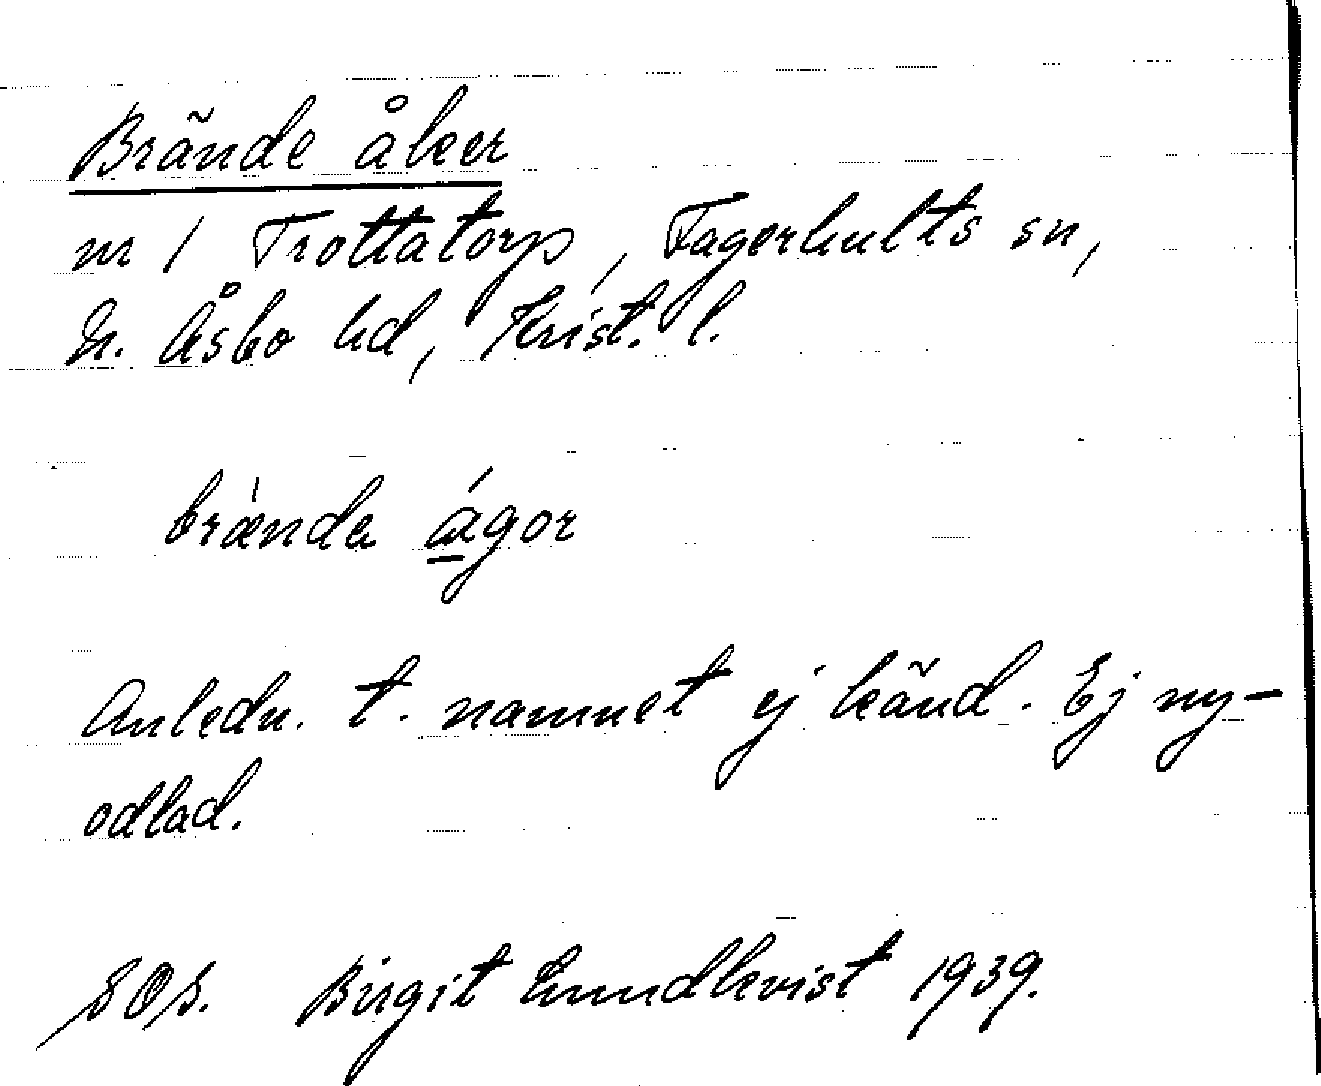 Brände åker
nr 1 Trottatorp, Fagerhults sn,
N. Åsbo hd, Krist. l.
brǽnda ágor
Anledn. t. namnet ej känd. Ej ny-
odlad.
Birgit Lundkvist 1939.